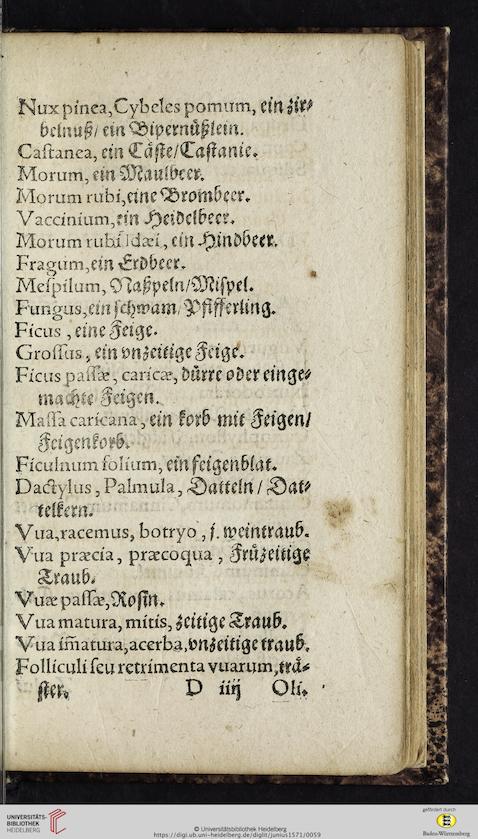 Nux pinea, Cybeles pomum, ein zir⸗
belnuß/ ein Bipernüßlein.
Castanea, ein Cäste/Castanie.
Morum, ein Maulbeer.
Morum rubi, eine Brombeer.
Vaccinium, ein Heidelbeer.
Morum rubi Idæi, ein Hindbeer.
Fragum, ein Erdbeer.
Mespilum, Naßpeln/Mispel.
Fungus, ein schwam/Pfifferling.
Ficus, eine Feige.
Grossus, ein vnzeitige Feige.
Ficus passæ, caricæ, dürre oder einge⸗
machte Feigen.
Massa caricana, ein korb mit Feigen/
Feigenkorb.
Ficulnum folium, ein feigenblat.
Dactylus, Palmula, Datteln/ Dat⸗
telkern.
Vua, racemus, botryo, j. weintraub.
Vua præcia, præcoqua, Früzeitige
Traub.
Vuæ passæ, Rosin.
Vua matura, mitis, zeitige Traub.
Vua im̄atura, acerba, vnzeitige traub.
Folliculi seu retrimenta vuarum, trä⸗
ster.
D iiij Oli.
UNIVERSITÄTS-
BIBLIOTHEK
HEIDELBERG
© Universitätsbibliothek Heidelberg
https://digi.ub.uni-heidelberg.de/diglit/junius1571/0059
gefördert durch
Baden-Württemberg